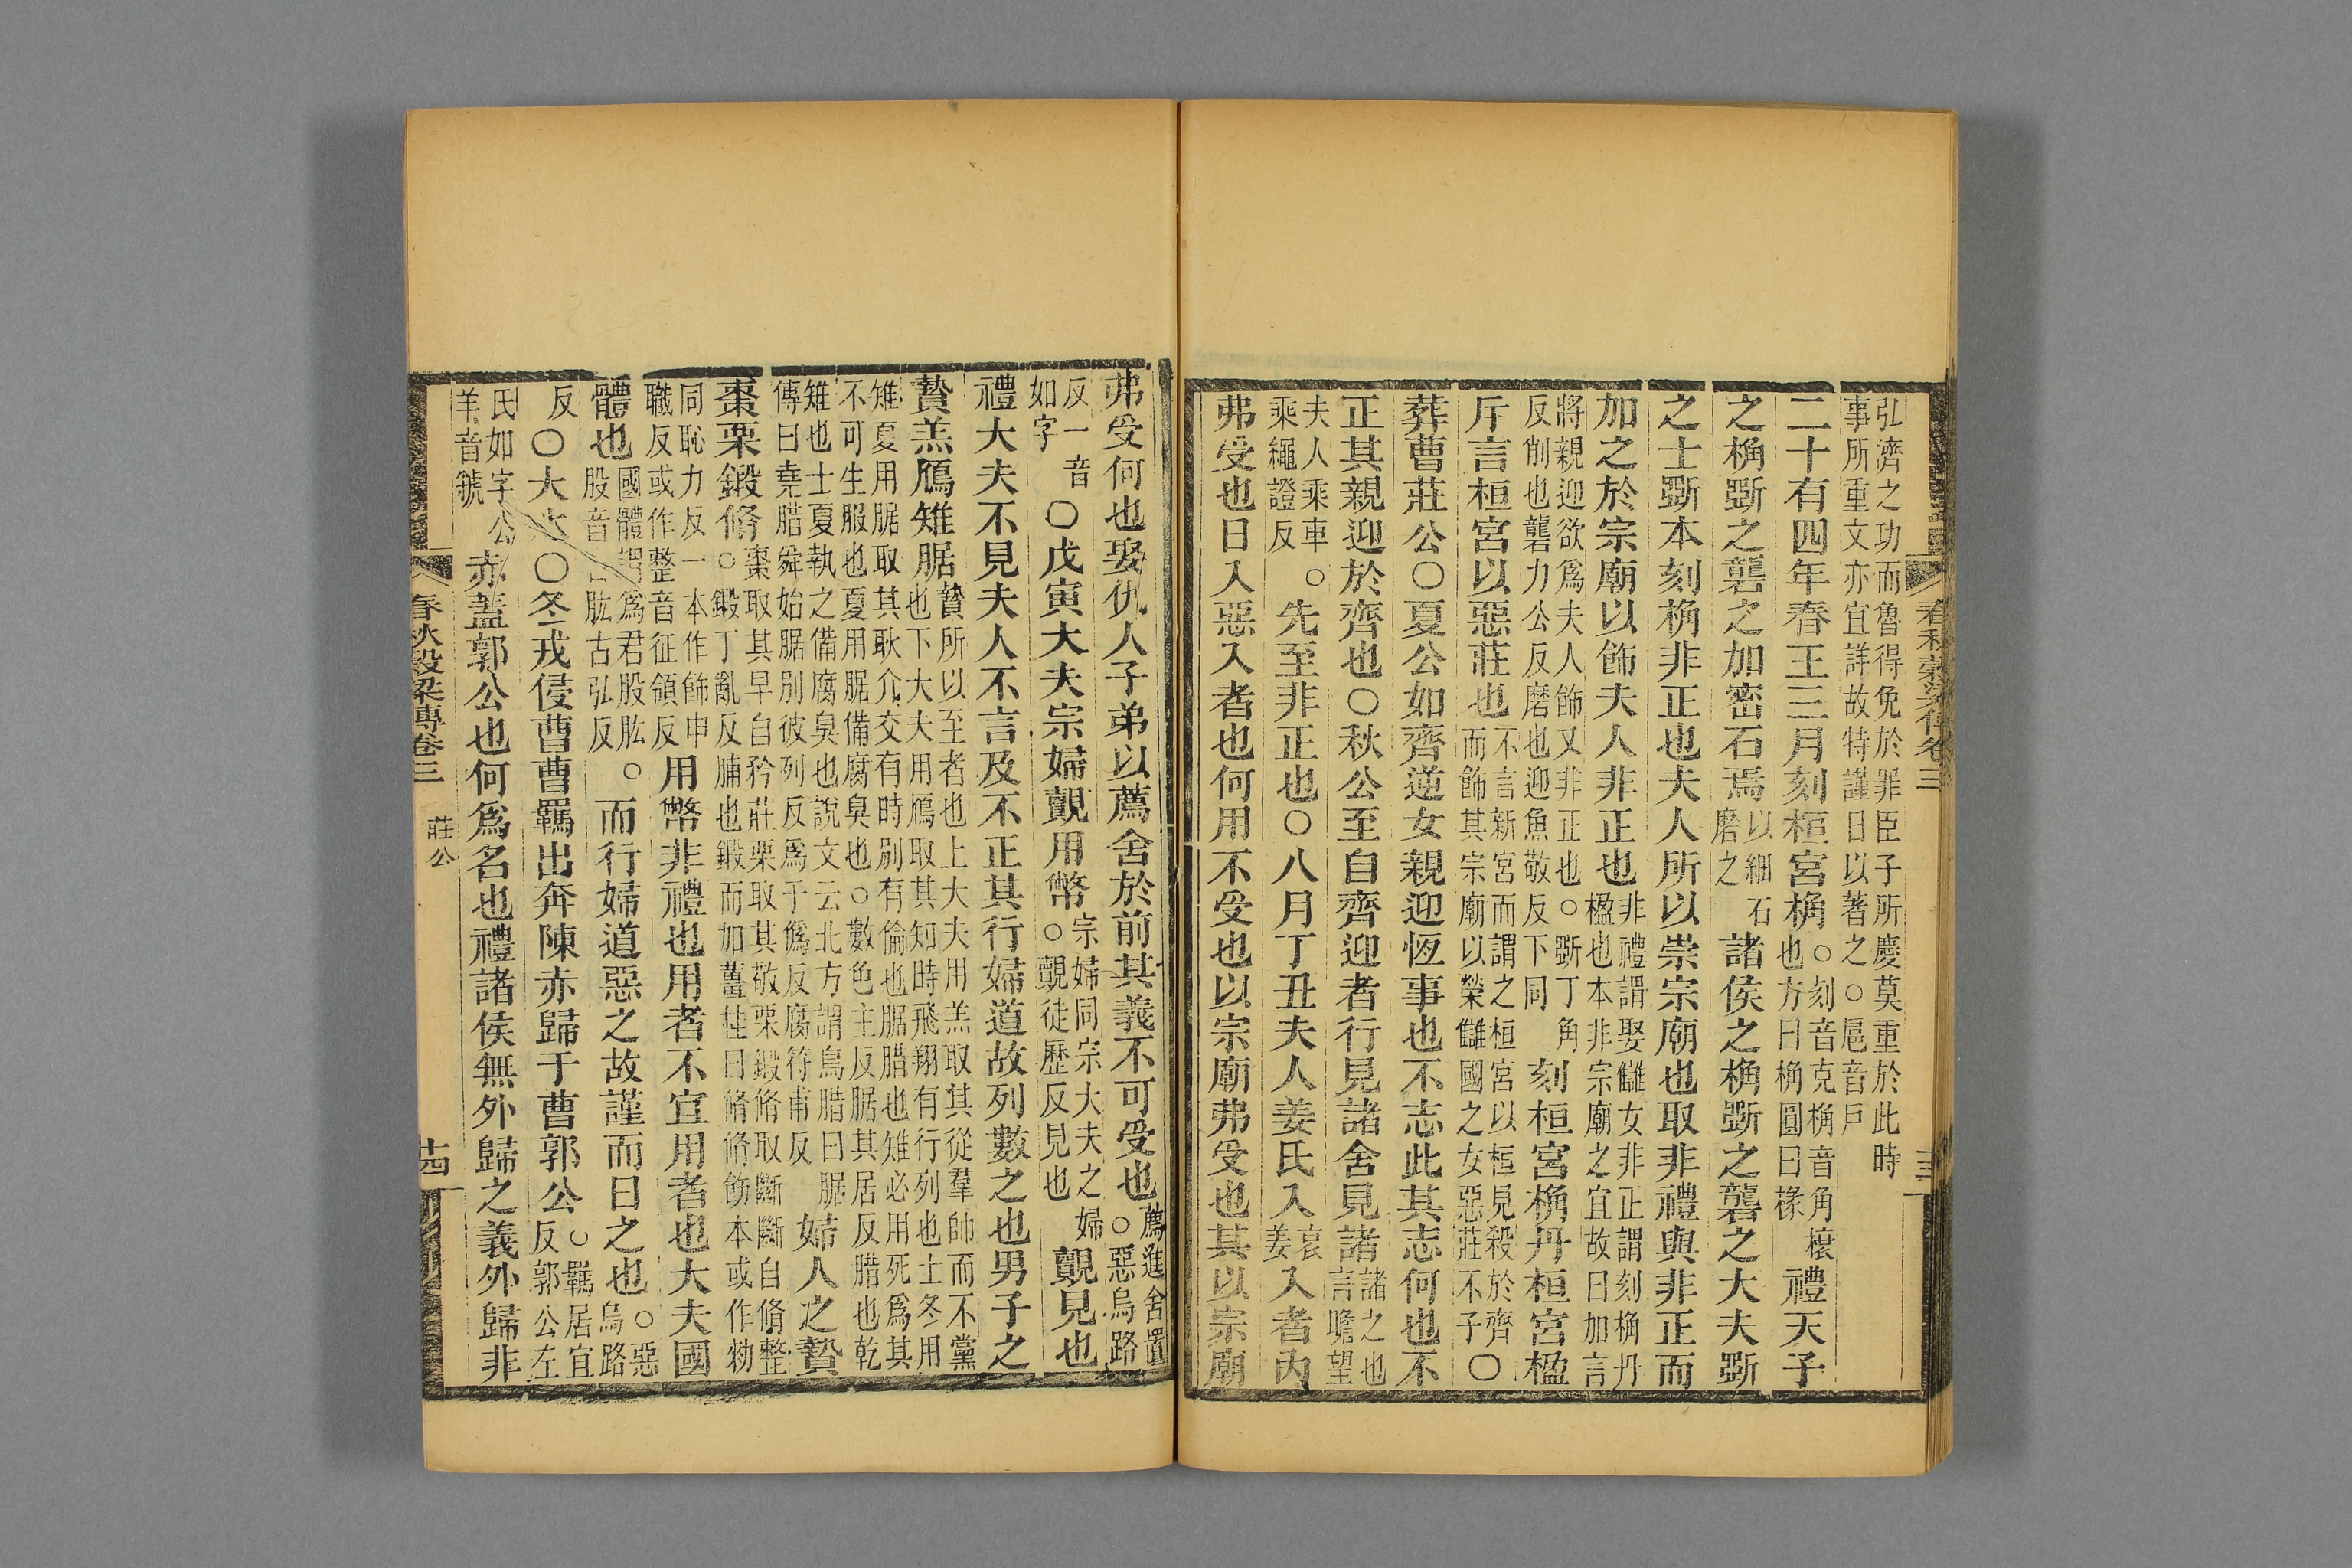 春秋穀梁傳卷三
弘濟之功而魯得免於罪臣子所慶莫重於此時
事所重文亦宜詳故特謹日以著之○扈音戶
二十有四年春王三月刻桓宮桷○刻音克桷音角榱也方曰桷圓曰椽禮天子
之桷斲之礱之加密石焉以細石磨之諸侯之桷斲之礱之大夫斲
之士斲本刻桷非正也夫人所以崇宗廟也取非禮與非正而
加之於宗廟以飾夫人非正也非禮謂娶讎女非正謂刻桷丹楹也本非宗廟之宜故曰加言
將親迎欲爲夫人飾又非正也○斲丁角反削也礱力公反磨也迎魚敬反下同刻桓宮桷丹桓宮楹
斥言桓宮以惡莊也不言新宮而謂之桓宮以桓見殺於齊而飾其宗廟以榮讎國之女惡莊不子○
葬曹莊公○夏公如齊逆女親迎恆事也不志此其志何也不
正其親迎於齊也○秋公至自齊迎者行見諸舍見諸諸之也言瞻望
夫人乘車○乘繩證反先至非正也○八月丁丑夫人姜氏入哀姜入者內
弗受也日入惡入者也何用不受也以宗廟弗受也其以宗廟
弗受何也娶仇人子弟以薦舍於前其義不可受也薦進舍置○惡烏路
反一音如字○戊寅大夫宗婦覿用幣宗婦同宗大夫之婦○覿徒歷反見也覿見也
禮大夫不見夫人不言及不正其行婦道故列數之也男子之
贄羔鴈雉腒贄所以至者也上大夫用羔取其從羣帥而不黨也下大夫用鴈取其知時飛翔有行列也士冬用
雉夏用腒取其耿介交有時別有倫也腒腊也雉必用死爲其不可生服也夏用腒備腐臭也○數色主反腒其居反腊也乾
雉也士夏執之備腐臭也說文云北方謂鳥腊曰腒傳曰堯腊舜始腒別彼列反爲于僞反腐符甫反婦人之贄
棗栗鍛脩棗取其早自矜莊栗取其敬栗鍛脩取斷斷自脩整○鍛丁亂反脯也鍛而加薑桂曰脩脩飭本或作勑
同恥力反一本作飾申職反或作整音征領反用幣非禮也用者不宜用者也大夫國
體也國體謂爲君股肱○股音古肱古弘反而行婦道惡之故謹而日之也○惡烏路
反○大水○冬戎侵曹曹羈出奔陳赤歸于曹郭公○羈居宜反郭公左
氏如字公羊音虢赤蓋郭公也何爲名也禮諸侯無外歸之義外歸非
春秋穀梁傳卷三
莊公
十四